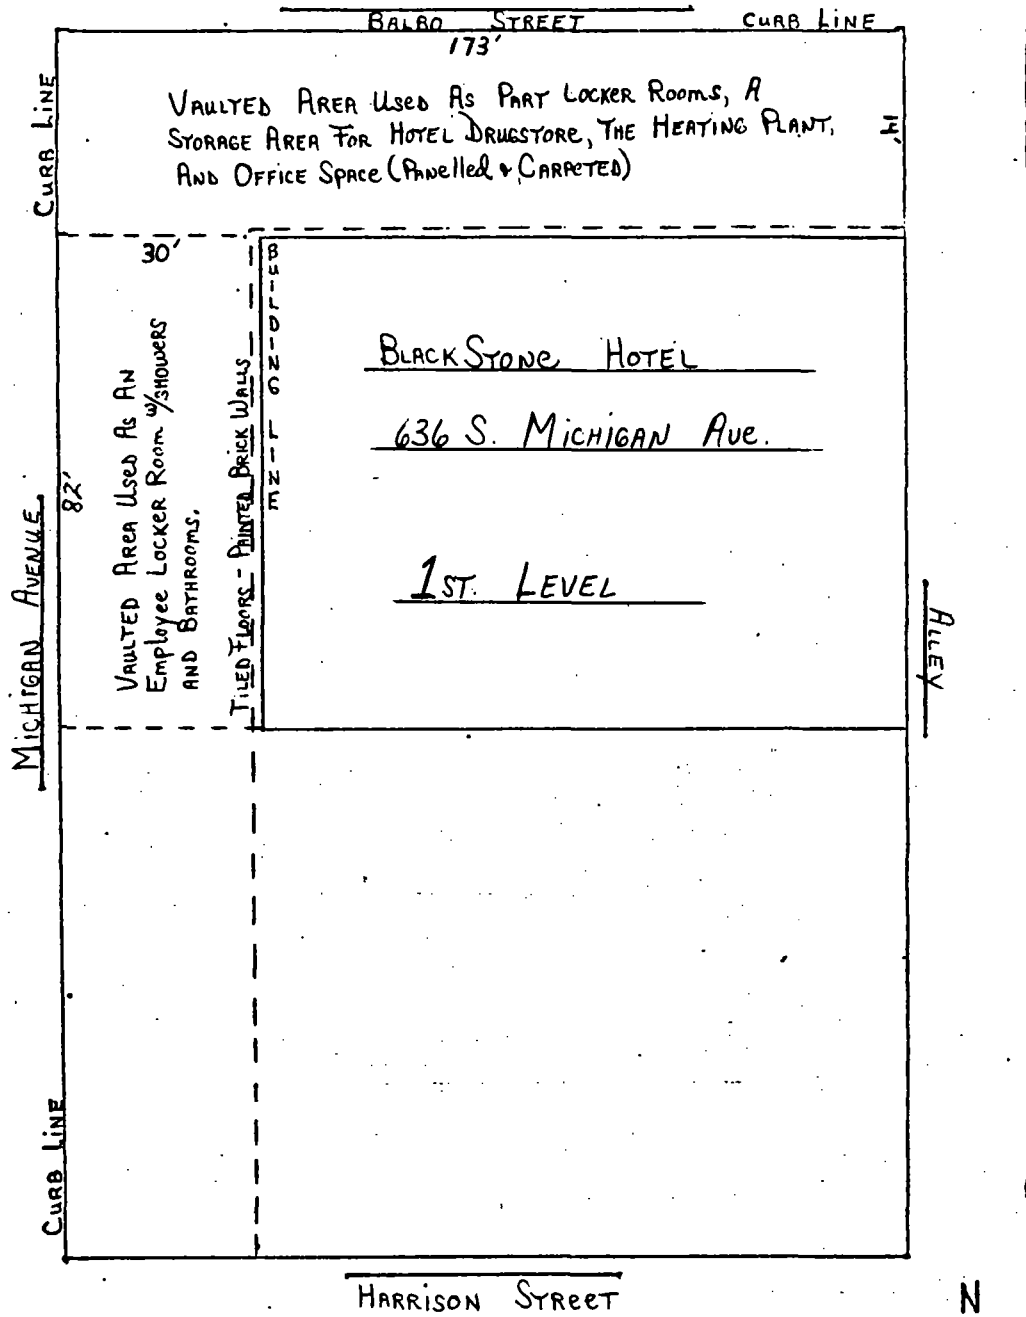 BALBO STREET CURB LINE
173'
CURB LINE
VAULTED AREA USED AS PART LOCKER ROOMS, A
STORAGE AREA FOR HOTEL DRUGSTORE, THE HEATING PLANT,
AND OFFICE SPACE (PANELLED & CARPETED)
14'
30'
VAULTED AREA USED AS AN
EMPLOYEE LOCKER ROOM W/SHOWERS
AND BATHROOMS.
TILED FLOORS - PAINTED BRICK WALLS
BUILDING LINE
82'
BLACKSTONE HOTEL
636 S. MICHIGAN AVE.
1ST. LEVEL
MICHIGAN AVENUE
ALLEY
CURB LINE
HARRISON STREET
N